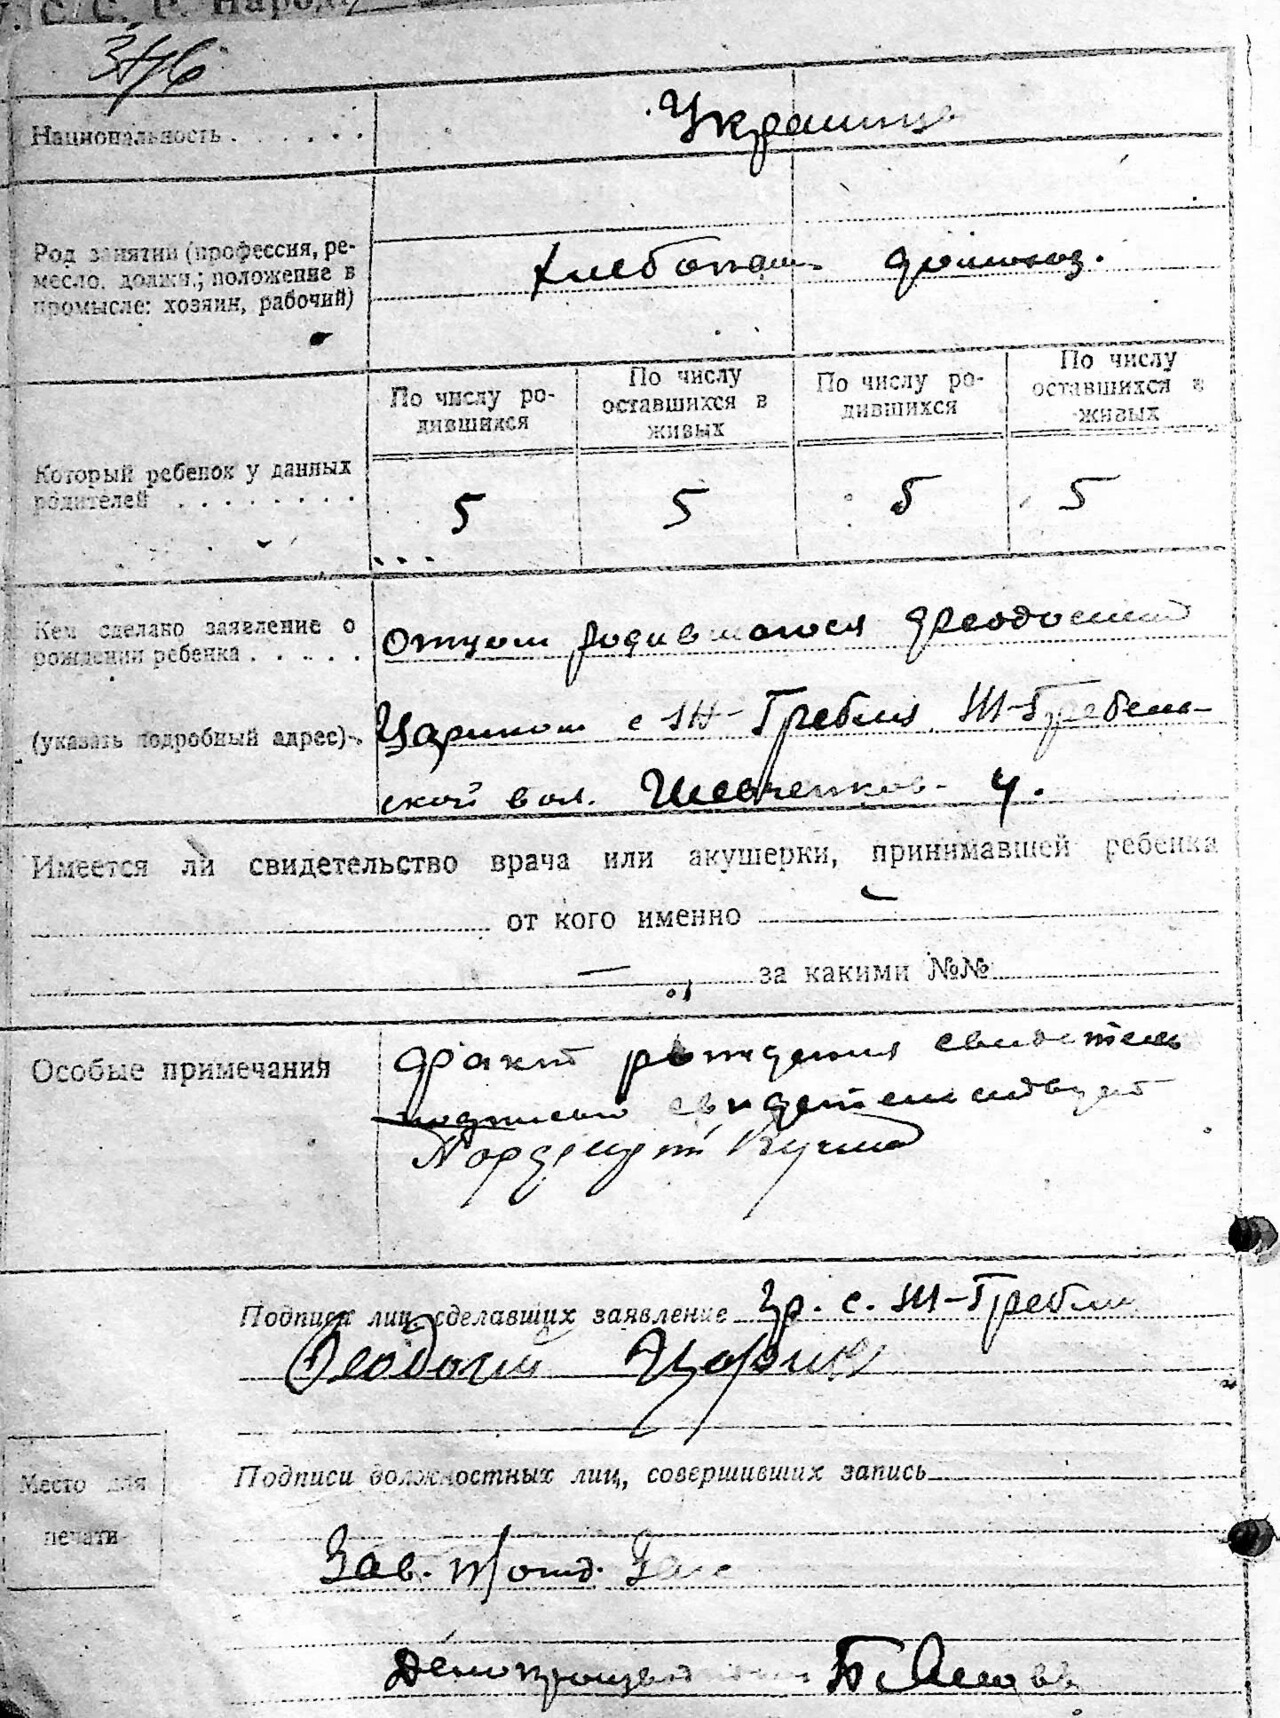 С. С. Р. Народ
Национальность . . . . . . Украинцы
Род занятий (профессия, ре-
месло, должн.; положение в
промысле: хозяин, рабочий)
Хлебопаш. домохоз.
По числу ро-
дившихся
По числу
оставшихся в
живых
По числу ро-
дившихся
По числу
оставшихся в
живых
Который ребенок у данных
родителей . . . . . . . .
5 5 5 5
Кем сделано заявление о
рождении ребенка . . . . .
(указать подробный адрес) .
Отцом родившагося Феодосий
Цариком с Ш-Гребля Ш-Гребель-
ской вол. Шевченков. у.
Имеется ли свидетельство врача или акушерки, принимавшей ребенка
от кого именно
— за какими №№
Особые примечания
Факт рождения свидетель
подписью свидетельствует
Подписи лиц, сделавших заявление гр. с. Ш-Гребли
Феодосий Царик
Подписи должностных лиц, совершивших запись
Место для
печати
Зав. п/отд. Загс
Делопроизводитель